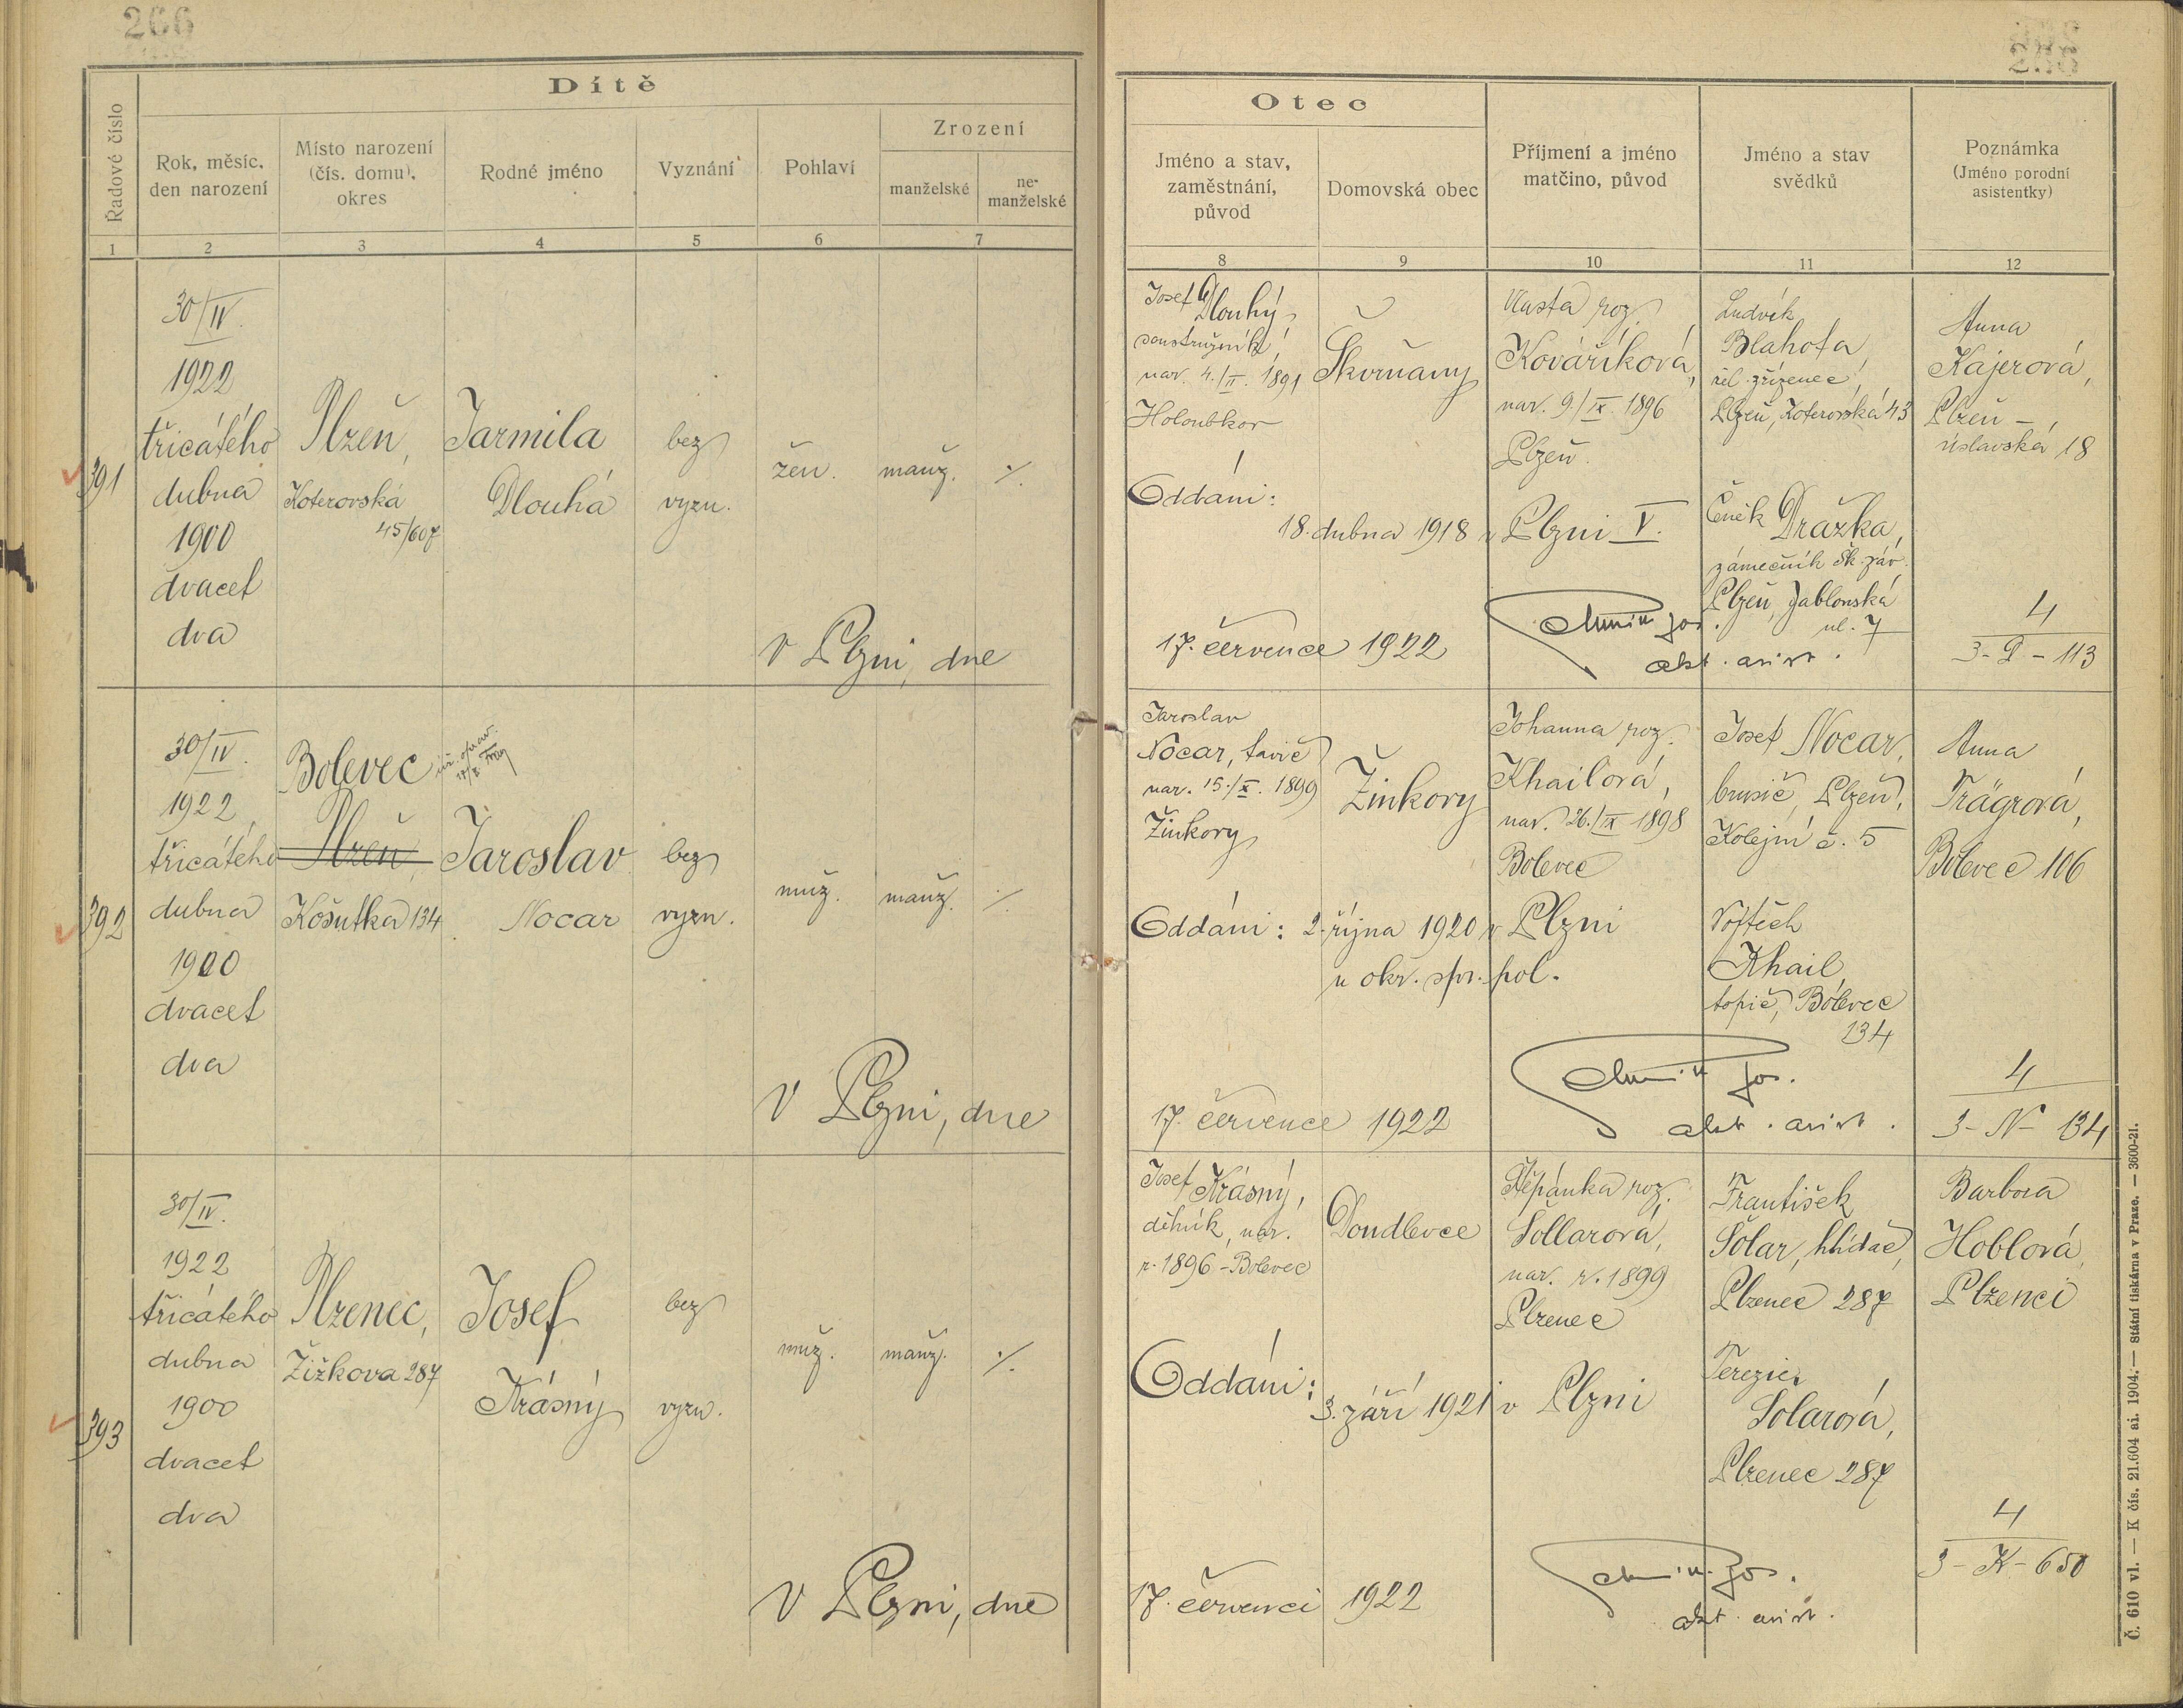 266
266
Dítě
Řadové číslo
Rok, měsíc,
den narození
Místo narození
(čís. domu),
okres
Rodné jméno
Vyznání
Pohlaví
Zrození
manželské
ne-
manželské
1
2
3
4
5
6
7
391
30/IV.
1922
třicátého
dubna
1900
dvacet
dva
Plzeň,
Koterovská
45/607
Jarmila
Dlouhá
bez
vyzn.
žen.
manž.
⁒
V Plzni, dne
392
30/IV.
1922
třicátého
dubna
1900
dvacet
dva
Bolevec
Plzeň
Košutka 134
Jaroslav
Nocar
bez
vyzn.
muž.
manž.
⁒
V Plzni, dne
393
30/IV.
1922
třicátého
dubna
1900
dvacet
dva
Plzenec,
Žižkova 287
Josef
Krásný
bez
vyzn.
muž.
manž.
⁒
V Plzni, dne
Otec
Jméno a stav,
zaměstnání,
původ
Domovská obec
Příjmení a jméno
matčino, původ
Jméno a stav
svědků
Poznámka
(Jméno porodní
asistentky)
8
9
10
11
12
Josef Dlouhý,
soustružník,
nar. 4./II. 1891
Holoubkov
Škvrňany
Vlasta roz.
Kováříková,
nar. 9./IX. 1896
Plzeň
Ludvík
Blahota,
žel. zřízenec,
Plzeň, Koterovská 43
Čeněk Dražka,
zámečník Šk. záv.
Plzeň, Jablonská
ul. 7
Anna
Kajerová,
Plzeň -
úslavská 18
Oddáni:
18. dubna 1918 v Plzni V.
17. července 1922
akt. asist.
4
3-D-113
Jaroslav
Nocar, tavič
nar. 15./X. 1899
Žinkovy
Žinkovy
Johanna roz.
Khailová,
nar. 26./IX 1898
Bolevec
Josef Nocar,
brusič, Plzeň,
Kolejní č. 5
Vojtěch
Khail,
topič, Bolevec
134
Anna
Trägrová,
Bolevec 106
Oddáni: 2. října 1920 v Plzni
u okr. spr. pol.
17. července 1922
Jos.
akt. asist.
4
3-N-134
Josef Krásný,
dělník, nar.
r. 1896 - Bolevec
Doudlevce
Štěpánka roz.
Šollarová,
nar. r. 1899
Plzenec
František
Šolar, hlídač,
Plzenec 287
Terezie
Šolarová,
Plzenec 287
Barbora
Hoblová,
Plzenci
Oddáni:
3. září 1921 v Plzni
17. červenci 1922
Jos.
akt. asist.
4
3-K-650
Č. 610 vl. — K čís. 21.604 ai. 1904. — Státní tiskárna v Praze. — 3600-21.